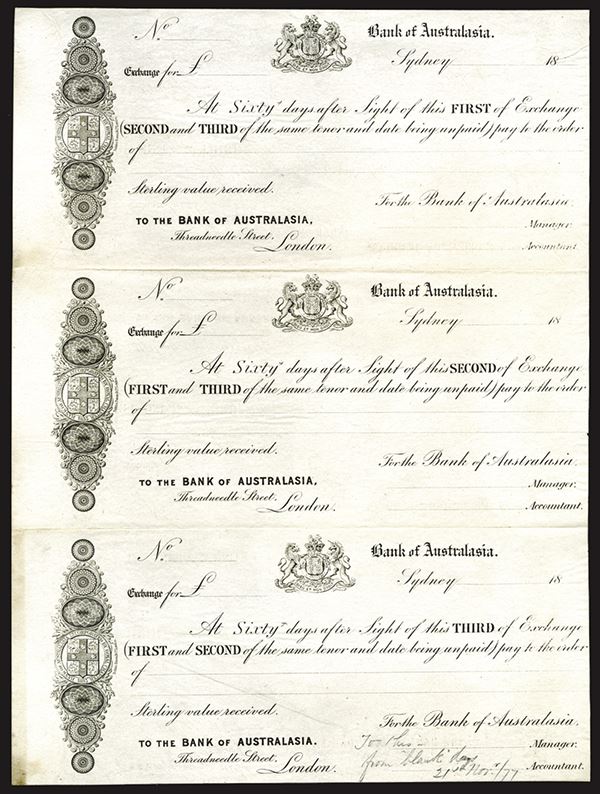 No
Bank of Australasia.
Sydney 18
Exchange for £
At Sixty days after Sight of this FIRST of Exchange
(SECOND and THIRD of the same tenor and date being unpaid) pay to the order
of
Sterling value received.
For the Bank of Australasia.
TO THE BANK OF AUSTRALASIA,
Manager.
Threadneedle Street,
London.
Accountant.
No
Bank of Australasia.
Sydney 18
Exchange for £
At Sixty days after Sight of this SECOND of Exchange
(FIRST and THIRD of the same tenor and date being unpaid) pay to the order
of
Sterling value received.
For the Bank of Australasia.
TO THE BANK OF AUSTRALASIA,
Manager.
Threadneedle Street,
London.
Accountant.
No
Bank of Australasia.
Sydney 18
Exchange for £
At Sixty days after Sight of this THIRD of Exchange
(FIRST and SECOND of the same tenor and date being unpaid) pay to the order
of
Sterling value received.
For the Bank of Australasia.
TO THE BANK OF AUSTRALASIA,
Manager.
Threadneedle Street,
London.
Accountant.
this
from blank
21st Novr/77